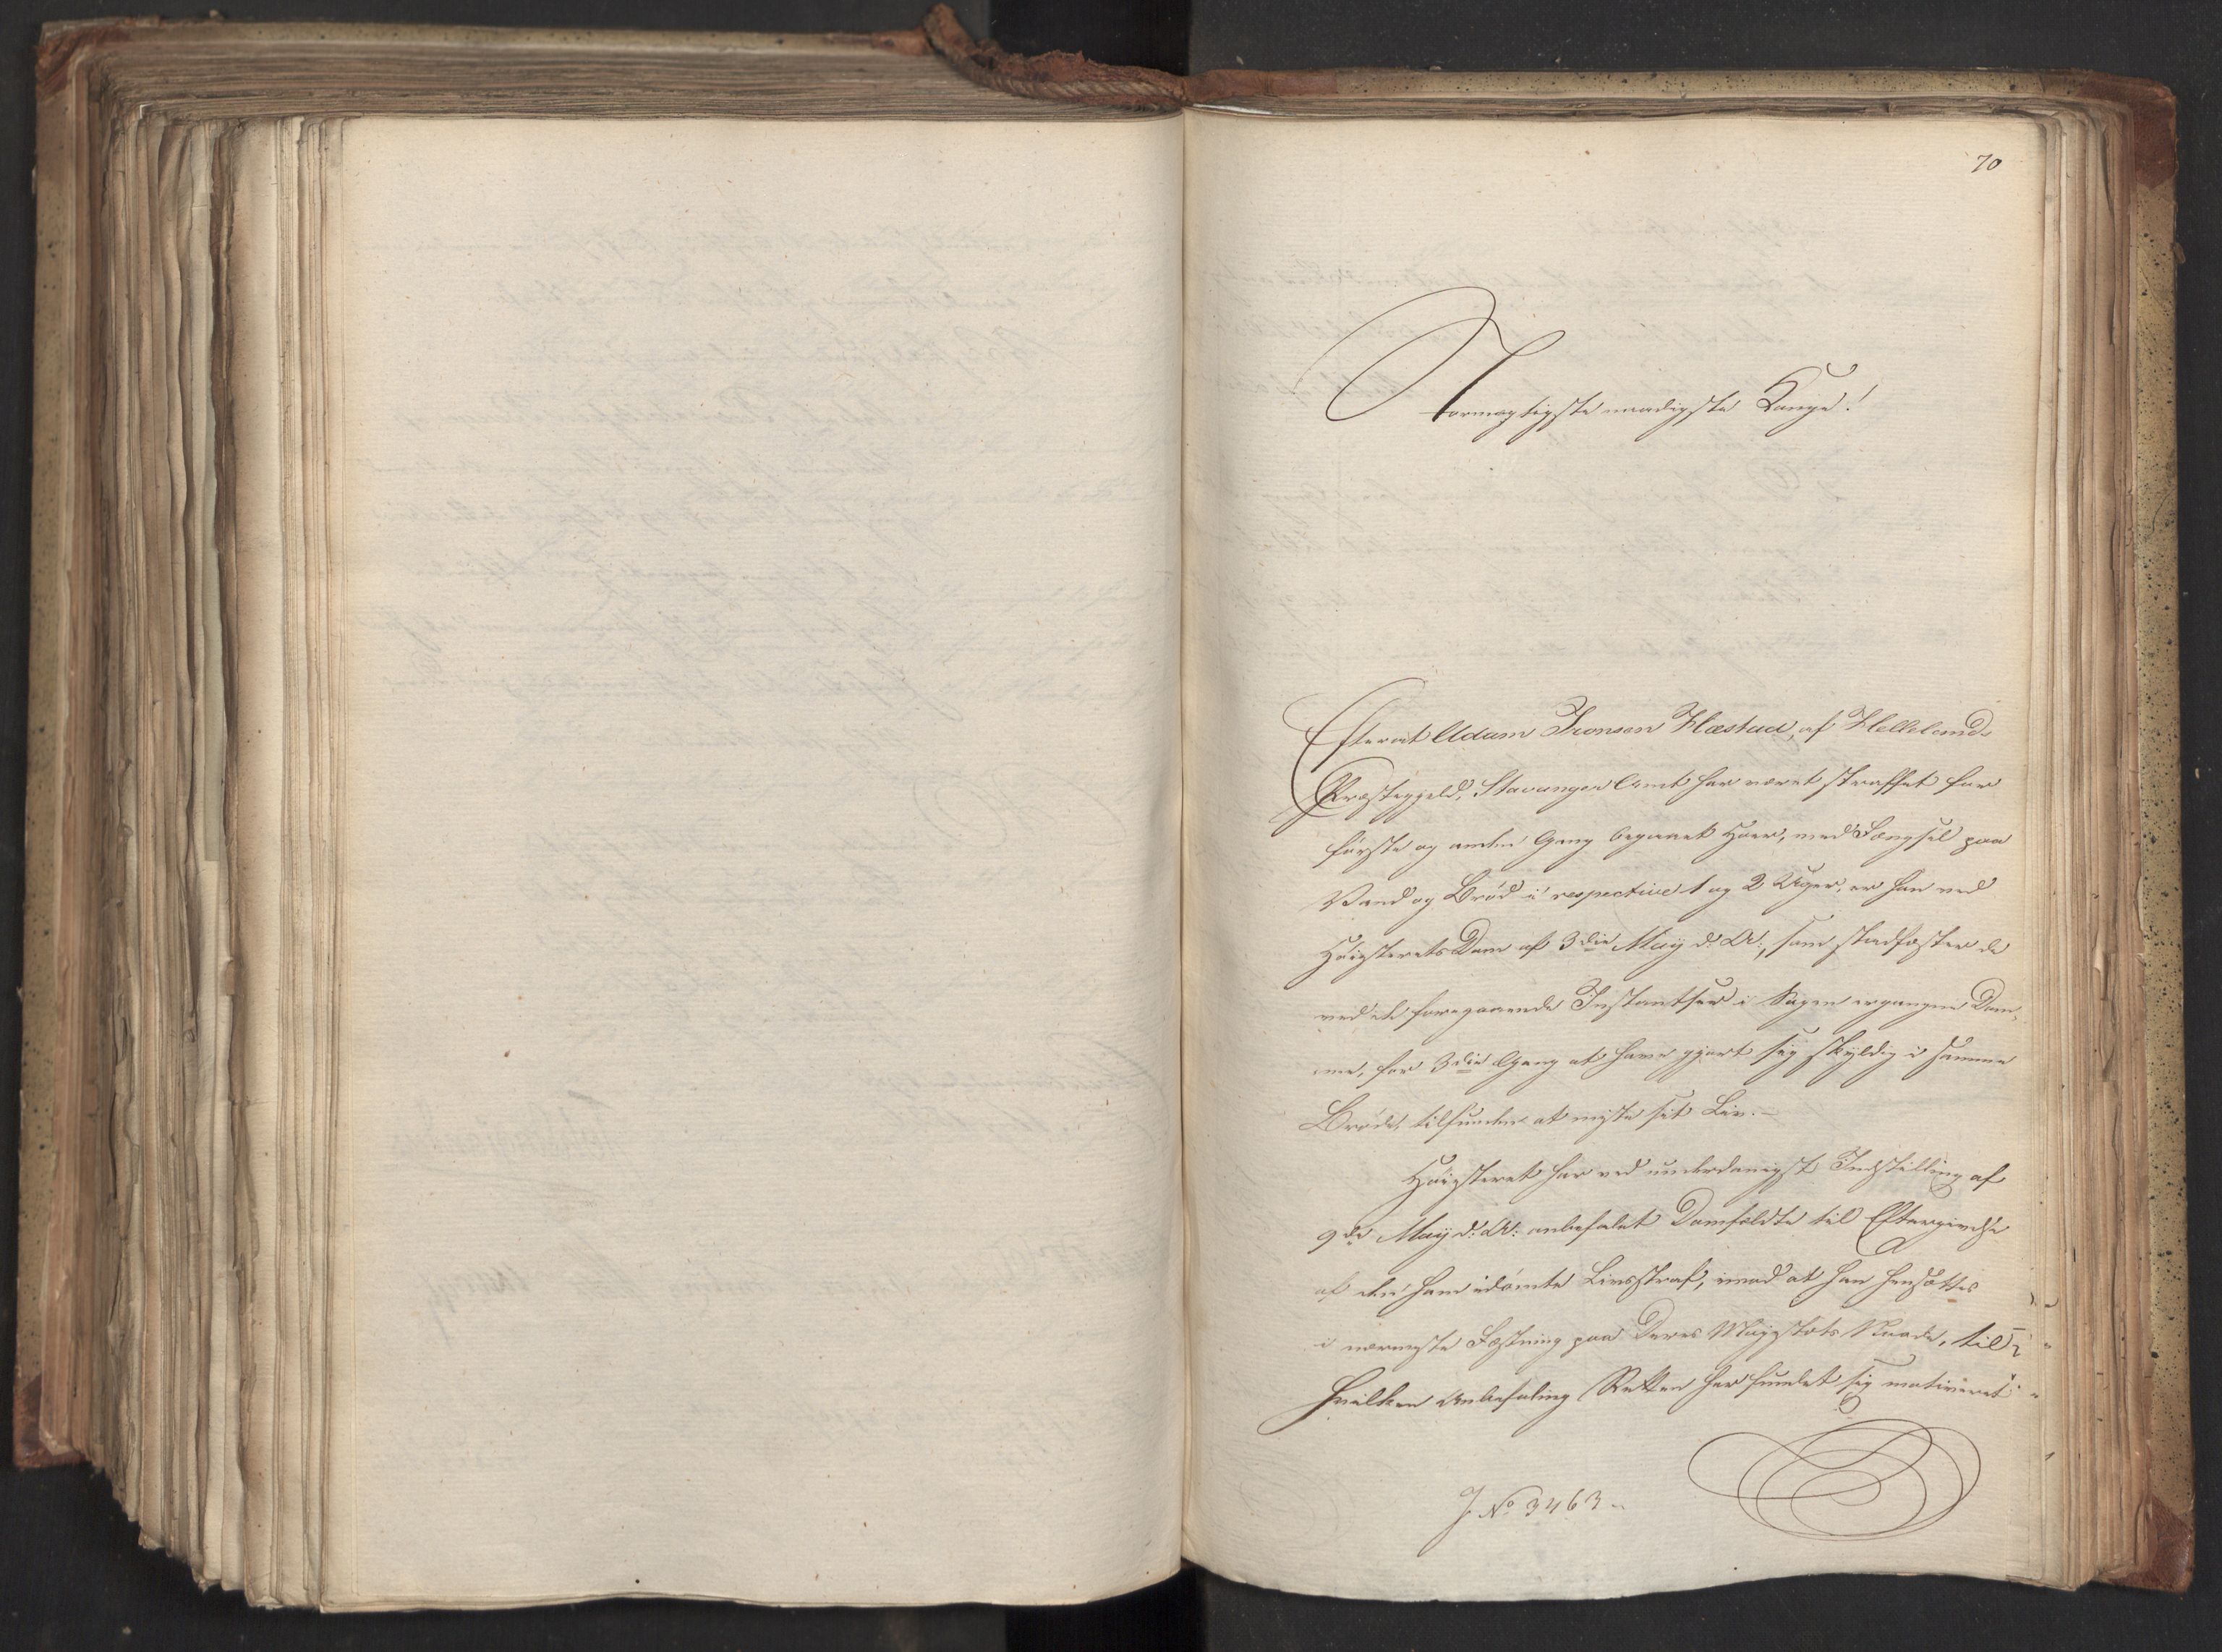 70
Stormægtigste naadigste Konge!
Efterat Adam Iversen Hæstad, af Hellelands
Præstegjeld, Stavanger Amt har været straffet for
første og anden Gang begaaet Hoer, med Fængsel paa
Vand og Brød i respective 1 og 2 Uger, er han ved
Høiesterets Dom af 3die May d: A:, som stadfæster de
ved de foregaaende Instantser i Sagen ergangne Dom-
me, for 3die Gang at have gjort sig skyldig i samme
Brøde, tilfunden at miste sit Liv.-
Høiesteret har ved underdanigst Indstilling af
9de May d: A: anbefalet Domfældte til Eftergivelse
af den ham idømte Livsstraf, imod at han hensættes
i nærmeste Fæstning paa Deres Majestæts Naade, til
hvilken Anbefaling Retten har fundet sig motiveret
J. No 3463.